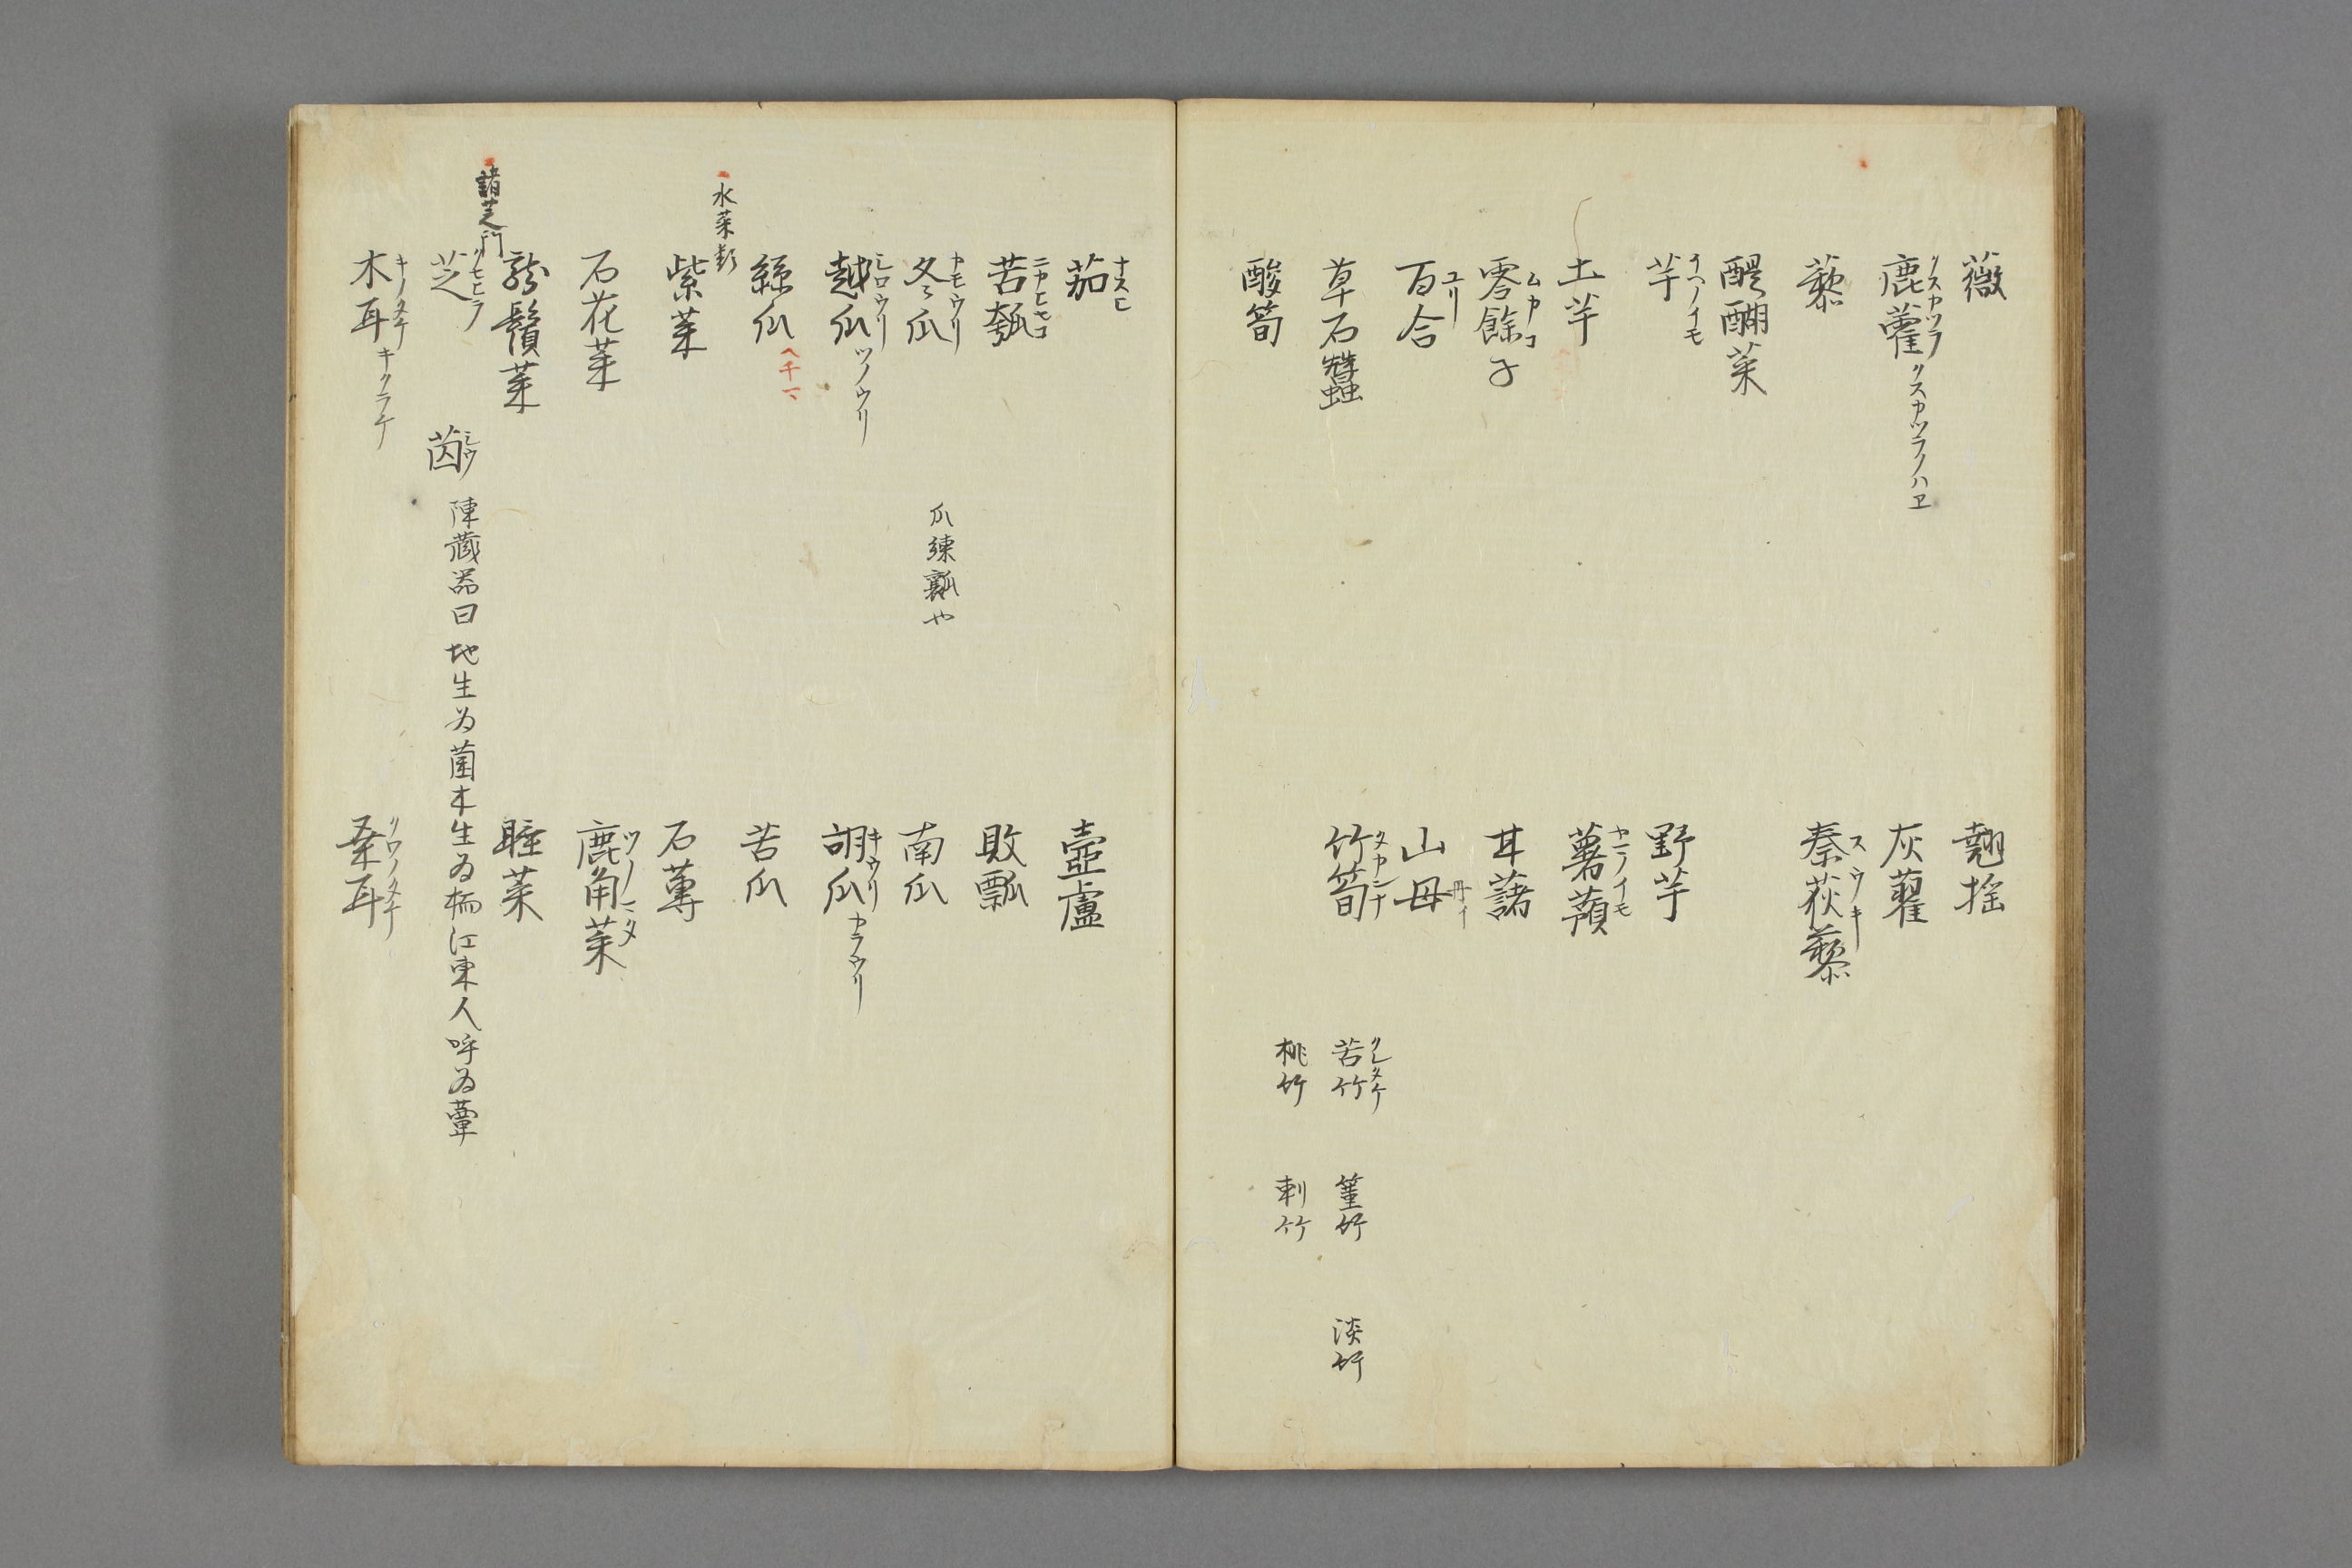 薇
翹揺
鹿藿 クスカツラ クスカツラノハエ
灰藋
藜
秦荻藜 スウキ
醍醐菜
芋 イヘノイモ
野芋
土芋
薯蕷 ヤマノイモ
零餘子 ムカコ
甘藷
百合 ユリ
山毋 丹イ
草石蠶
竹筍 タカンナ
苦竹 クレタケ
篁竹
淡竹
桃竹
刺竹
酸筍
茄 ナスヒ
壺盧
苦瓠 ニカヒセコ
敗瓢
冬瓜 カモウリ
瓜練瓤や
南瓜
越瓜 シロウリ ツノウリ
胡瓜 キウリ カラウリ
絲瓜
苦瓜
水菜類
紫菜
石蓴
石花菜
鹿角菜 ツノマタ
龍鬚菜
睡菜
諸芝門
芝
陳蔵器曰地生為菌木生為檽江東人呼為蕈
木耳 キノタケ キクラケ
桑耳 クワノタケ